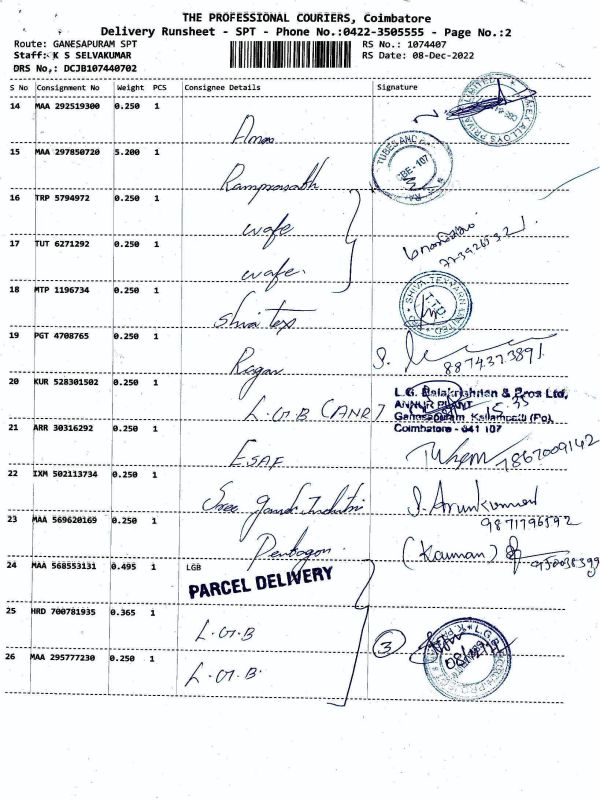 THE PROFESSIONAL COURIERS, Coimbatore
Delivery Runsheet - SPT - Phone No.:0422-3505555 - Page No.:2
Route: GANESAPURAM SPT RS No.: 1074407
Staff: K S SELVAKUMAR RS Date: 08-Dec-2022
DRS No,: DCJB107440702
S No Consignment No Weight PCS Consignee Details Signature
14 MAA 292519300 0.250 1
15 MAA 297850720 5.200 1 Ramprasath
TUBES AND
16 TRP 5794972 0.250 1 wafe
17 TUT 6271292 0.250 1 wafe.
18 MTP 1196734 0.250 1 Shiva tex
SHIVA TEXYARN LIMITED
19 PGT 4708765 0.250 1 Ragav
8874373891
20 KUR 528301502 0.250 1 L.G.B (ANR)
L.G. Balakrishnan & Bros Ltd,
ANNUR PLANT
Ganesapuram, Kallampatti (Po),
Coimbatore - 641 107
21 ARR 30316292 0.250 1 ESAF
7867009142
22 IXM 502113734 0.250 1 Sree
S. Arunkumar
9871796592
23 MAA 569620169 0.250 1 Pentagon
24 MAA 568553131 0.495 1 LGB
PARCEL DELIVERY
25 HRD 700781935 0.365 1 L.G.B
3
26 MAA 295777230 0.250 1 L.G.B.